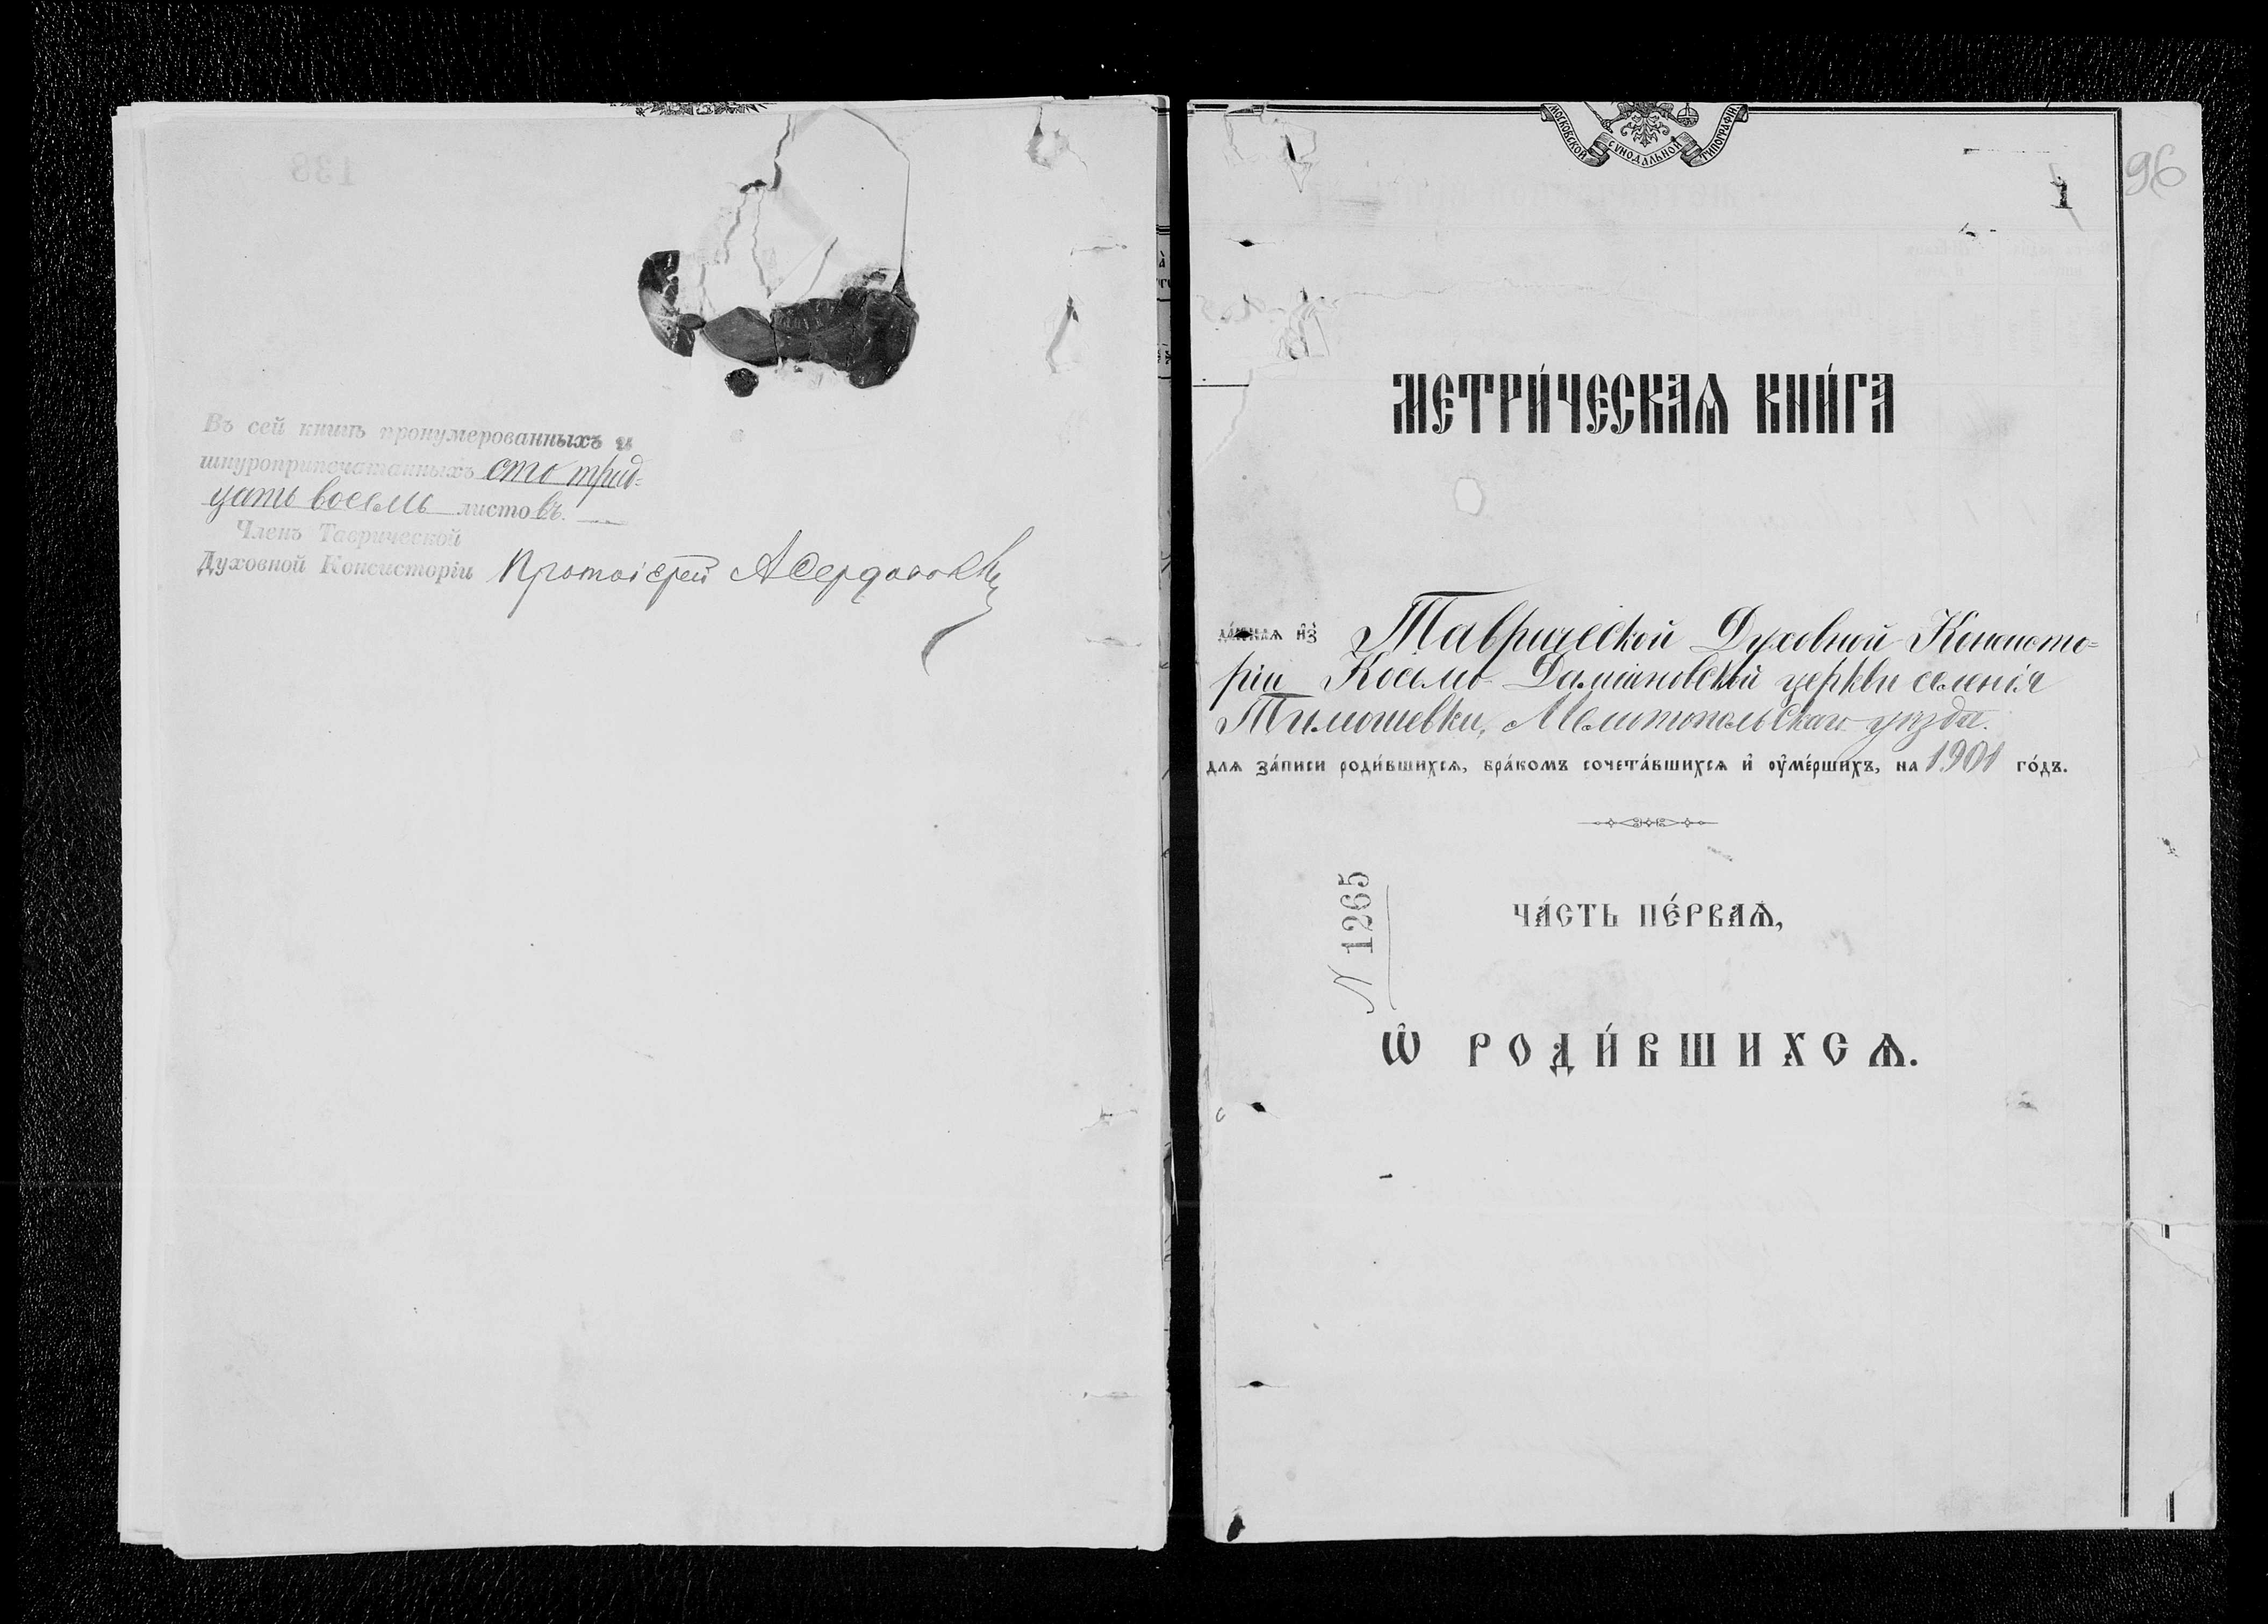 138
Въ сей книгѣ пронумерованныхъ и
шнуроприпечатанныхъ сто трид-
цать восемь листовъ.
Членъ Таврической
Духовной Консисторіи Протоіерей А Сердобольскій
МОСКОВСКОЙ СѴНОДАЛЬНОЙ ТИПОГРАФІИ.
1
96
МЕТРИ́ЧЕСКАѦ КНИ́ГА
да́ннаѧ и҆зъ Таврической Духовной Консисто-
ріи Косьмо-Даміановской церкви селенія
Тимошевки, Мелитопольскаго уѣзда.
длѧ за́писи роди́вшихсѧ, бра́комъ сочета́вшихсѧ и҆ ᲂу҆ме́ршихъ, на 1901 го́дъ.
N 1265
ЧА́СТЬ ПЕ́РВАѦ,
Ѽ РОДИ́ВШИХСѦ.